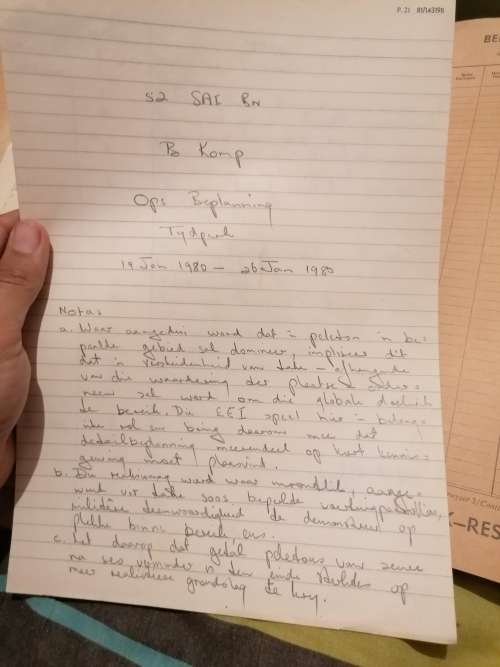 P. 21 81/143198
BE
52 SAI BN
B Komp
Ops Beplanning
Tydperk
19 Jan 1980 - 26 Jan 1980
Notas
a. Waar aangedui word dat 'n peloton in be=
paalde gebied sal domineer, impliseer dit
dat 'n verskeidenheid van take - afhangende
van die waardering der plaatse - onder=
neem sal word om die globale doelwit
te bereik. Die EEI speel hier 'n belang=
rike rol en bring daarom mee dat
detailbeplanning meerendeel op kort kennis=
gewing moet plaasvind.
b. Die word waar moontlik, aange=
wend vir take soos bepaalde
militêre teenwoordigheid te demonstreer op
plekke binne bereik, ens.
c. Let daarop dat getal pelotons van sewe
na ses verminder is ten einde op
meer realistiese grondslag te kry.
K-RES